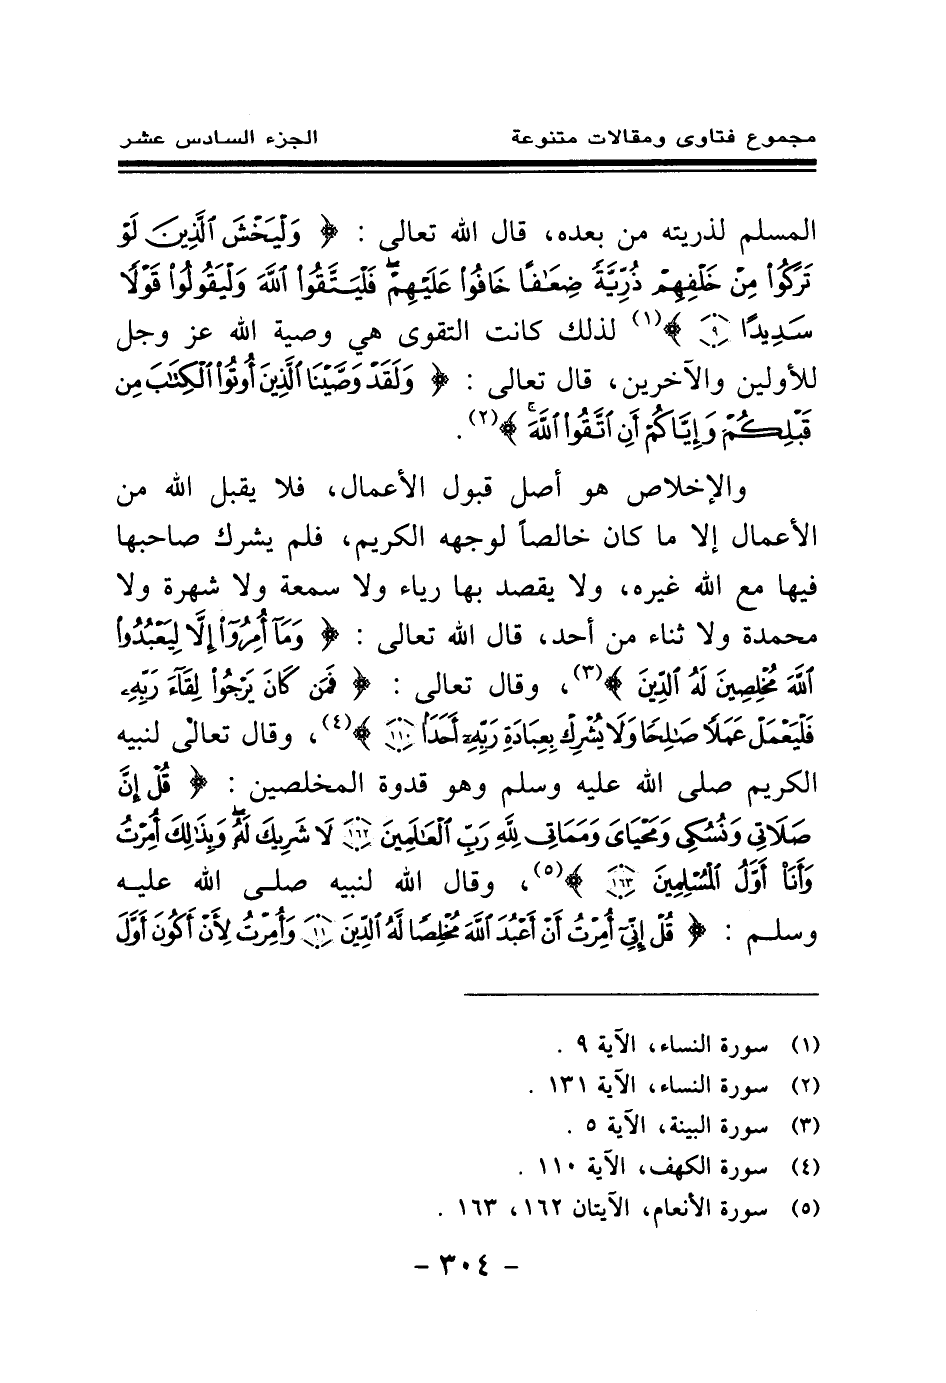 مجموع فتاوى ومقالات متنوعة الجزء السادس عشر
المسلم لذريته من بعده، قال الله تعالى : ﴿ وَلْيَخْشَ ٱلَّذِينَ لَوْ
تَرَكُوا۟ مِنْ خَلْفِهِمْ ذُرِّيَّةً ضِعَٰفًا خَافُوا۟ عَلَيْهِمْ ۖ فَلْيَتَّقُوا۟ ٱللَّهَ وَلْيَقُولُوا۟ قَوْلًا
سَدِيدًا ۝٩ ﴾(١) لذلك كانت التقوى هي وصية الله عز وجل
للأولين والآخرين، قال تعالى : ﴿ وَلَقَدْ وَصَّيْنَا ٱلَّذِينَ أُوتُوا۟ ٱلْكِتَٰبَ مِن
قَبْلِكُمْ وَإِيَّاكُمْ أَنِ ٱتَّقُوا۟ ٱللَّهَ ۚ ﴾(٢) .
والإخلاص هو أصل قبول الأعمال، فلا يقبل الله من
الأعمال إلا ما كان خالصاً لوجهه الكريم، فلم يشرك صاحبها
فيها مع الله غيره، ولا يقصد بها رياء ولا سمعة ولا شهرة ولا
محمدة ولا ثناء من أحد، قال الله تعالى : ﴿ وَمَآ أُمِرُوٓا۟ إِلَّا لِيَعْبُدُوا۟
ٱللَّهَ مُخْلِصِينَ لَهُ ٱلدِّينَ ﴾(٣)، وقال تعالى : ﴿ فَمَن كَانَ يَرْجُوا۟ لِقَآءَ رَبِّهِۦ
فَلْيَعْمَلْ عَمَلًا صَٰلِحًا وَلَا يُشْرِكْ بِعِبَادَةِ رَبِّهِۦٓ أَحَدًۢا ۝١١٠ ﴾(٤)، وقال تعالى لنبيه
الكريم صلى الله عليه وسلم وهو قدوة المخلصين : ﴿ قُلْ إِنَّ
صَلَاتِى وَنُسُكِى وَمَحْيَاىَ وَمَمَاتِى لِلَّهِ رَبِّ ٱلْعَٰلَمِينَ ۝١٦٢ لَا شَرِيكَ لَهُۥ ۖ وَبِذَٰلِكَ أُمِرْتُ
وَأَنَا۠ أَوَّلُ ٱلْمُسْلِمِينَ ۝١٦٣ ﴾(٥)، وقال الله لنبيه صلى الله عليه
وسلم : ﴿ قُلْ إِنِّىٓ أُمِرْتُ أَنْ أَعْبُدَ ٱللَّهَ مُخْلِصًا لَّهُ ٱلدِّينَ ۝١١ وَأُمِرْتُ لِأَنْ أَكُونَ أَوَّلَ
(١) سورة النساء، الآية ٩ .
(٢) سورة النساء، الآية ١٣١ .
(٣) سورة البينة، الآية ٥ .
(٤) سورة الكهف، الآية ١١٠ .
(٥) سورة الأنعام، الآيتان ١٦٢، ١٦٣ .
- ٣٠٤ -